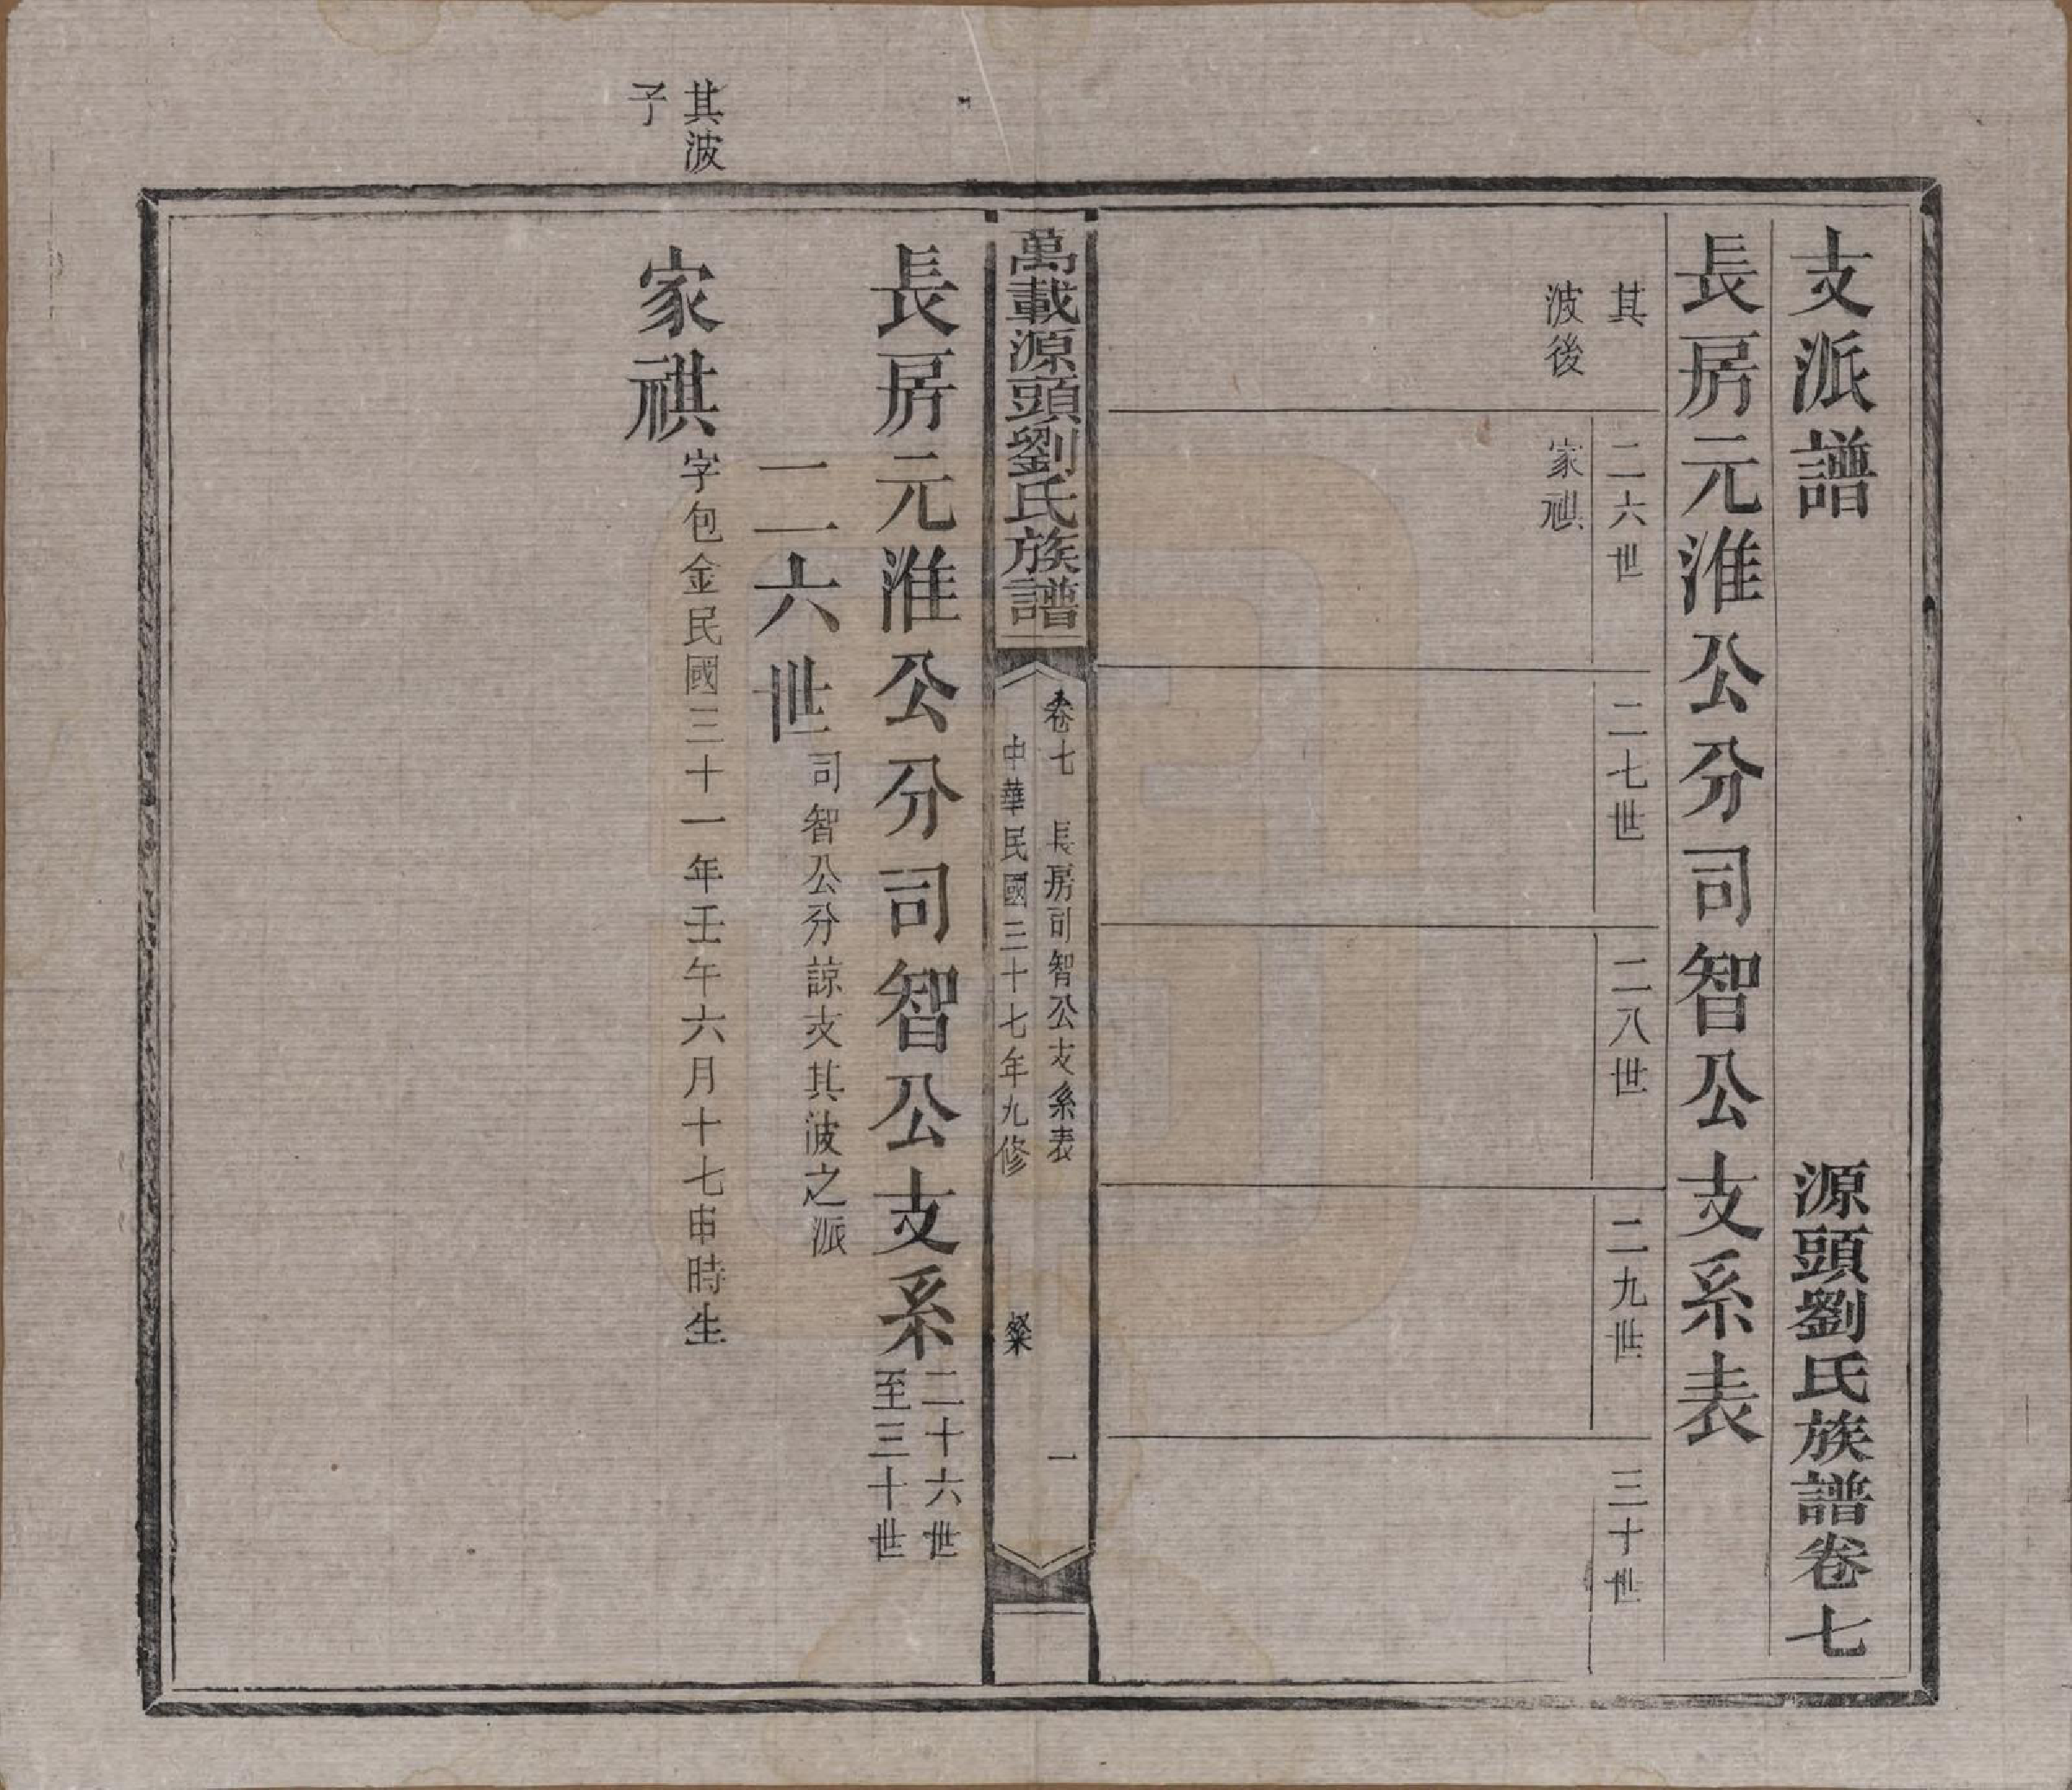 支派譜
源頭劉氏族譜卷七
長房元淮公分司智公支系表
其
波後
二六世
家祺
二七世
二八世
二九世
三十世
萬載源頭劉氏族譜
卷七
長房司智公支系表
一
中華民國三十七年九修
粲
長房元淮公分司智公支系
二十六世
至三十世
二六世
司智公分諒支其波之派
其波
子
家祺
字包金民國三十一年壬午六月十七申時生